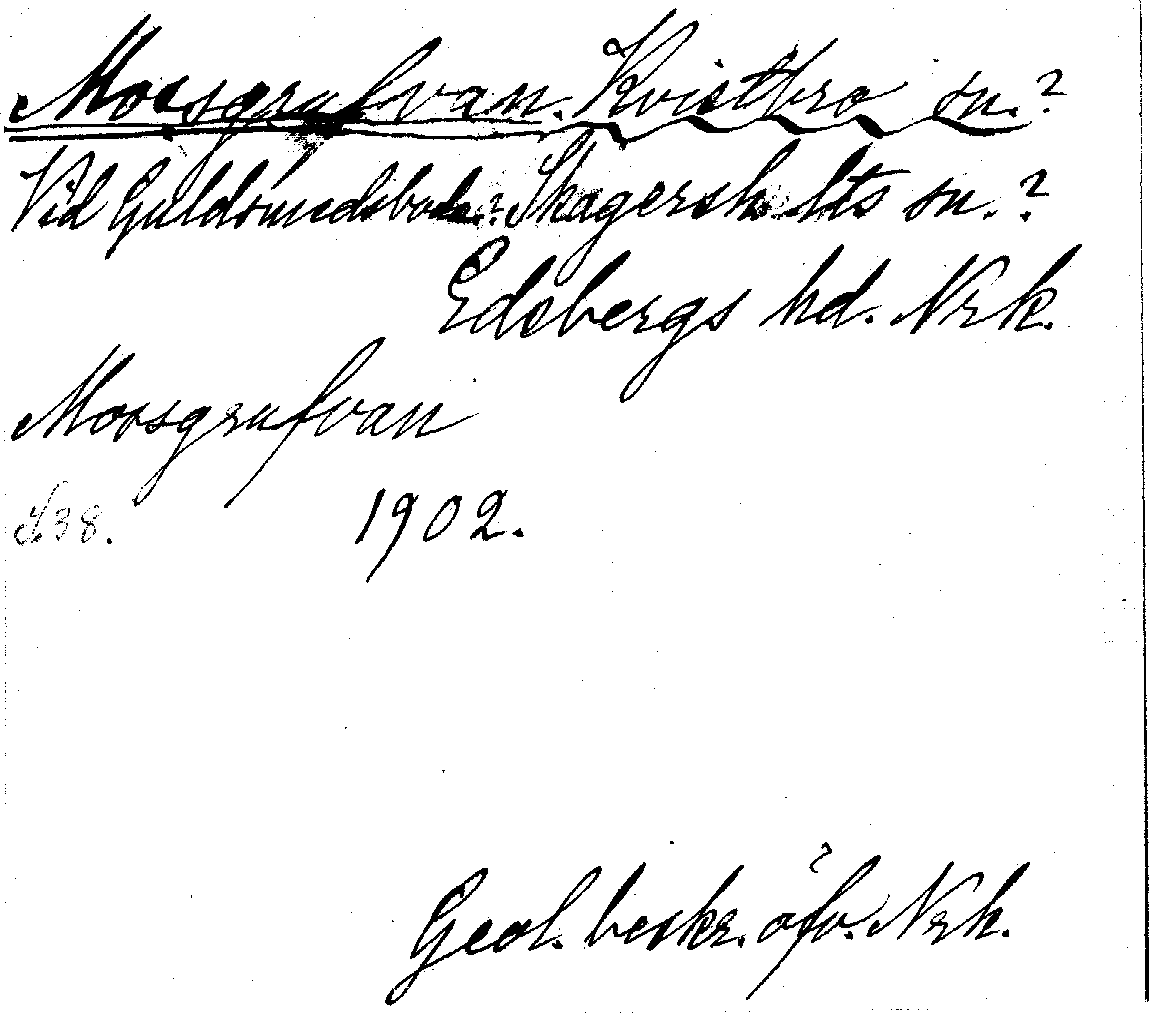 Morsgrafvan. Kvistbro sn.?
Vid Guldsmedsboda. Skagersholts sn.?
Edsbergs hd. Nrk.
Morsgrafvan
S. 38. 1902.
Geol. beskr. öfv. Nrk.